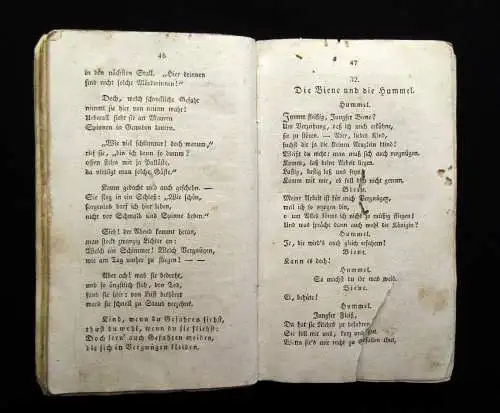 46
in den nächsten Stall. „Hier drinnen
sind nicht solche Mörderinnen!“
Doch, welch schreckliche Gefahr
nimmt sie hier von neuem wahr!
Ueberall sieht sie an Mauern
Spinnen in Geweben lauern.
„Wie viel schlimmer! doch warum,“
rief sie, „bin ich denn so dumm?
offen stehn mir ja Palläste,
da vertilgt man solche Gäste.“
Kaum gedacht und auch geschehn. —
Sie flog in ein Schloß: „Wie schön,
sorgenlos darf ich hier leben,
nicht vor Schwalb und Spinne beben.“
Sieh! der Abend kommt heran,
man steckt zwanzig Lichter an:
Welch ein Schimmer! Welch Vergnügen,
wie am Tag umher zu fliegen! — —
Aber ach! was sie bedroht,
und so ängstlich floh, den Tod,
fand sie hier von Lust bethöret
ward sie schnell zu Staub verzehrt.
Kind, wenn du Gefahren siehst,
thust du wohl, wenn du sie fliehst:
Doch lern' auch Gefahren meiden,
die sich in Vergnügen kleiden.
47
32.
Die Biene und die Hummel.
Hummel.
Immer fleißig, Jungfer Biene?
Um Verzeihung, daß ich mich erkühne,
sie zu stören. — Aber, liebes Kind,
suchst du dir die kleinen Aeuglein blind?
Weißt du mehr: man muß sich auch vergnügen.
Komm, laß deine Arbeit liegen.
Lustig, lustig laß uns seyn!
Komm mit mir, es soll dich nicht gereun.
Biene.
Meine Arbeit ist für mich Vergnügen,
weil ich so erzogen bin,
um Alles könnt ich nicht so müßig fliegen!
Und was spräche dann auch wohl die Königin?
Hummel.
Je, die wird's auch gleich erfahren!
Biene.
Kann es doch!
Hummel.
So machst du dir was weis.
Biene.
Ei, behüte!
Hummel.
Jungfer Fleiß,
Du hast sie Nichts zu befahren.
Sie soll mir wohl, kurz und
Wenn sie's mir recht zu gefallen thut,